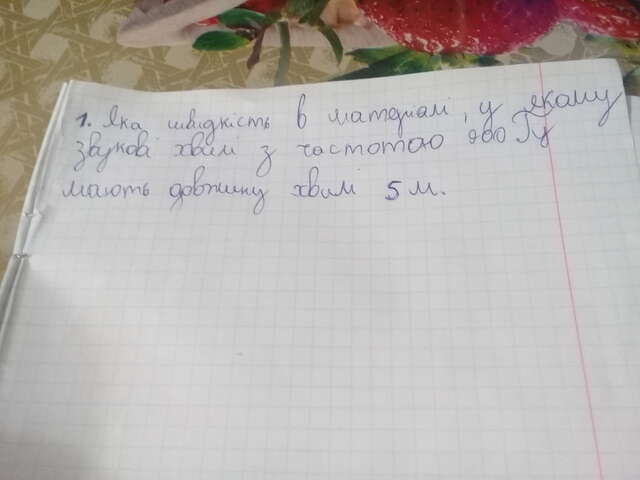 1. Яка швидкість в матеріалі, у якому
звукові хвилі з частотою 900 Гц
мають довжину хвилі 5 м.